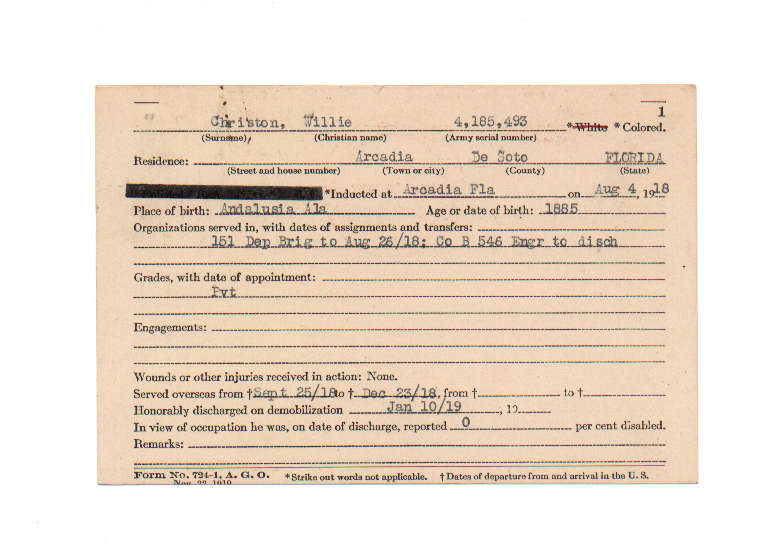 1
Christon, Willie 4,185,493 *White *Colored.
(Surname) (Christian name) (Army serial number)
Residence: Arcadia De Soto FLORIDA
(Street and house number) (Town or city) (County) (State)
*Inducted at Arcadia Fla on Aug 4, 1918
Place of birth: Andalusia Ala Age or date of birth: 1885
Organizations served in, with dates of assignments and transfers:
151 Dep Brig to Aug 26/18; Co B 546 Engr to disch
Grades, with date of appointment:
Pvt
Engagements:
Wounds or other injuries received in action: None.
Served overseas from †Sept 25/18 to † Dec 23/18, from † to †
Honorably discharged on demobilization Jan 10/19, 19
In view of occupation he was, on date of discharge, reported 0 per cent disabled.
Remarks:
Form No. 724-1, A. G. O. *Strike out words not applicable. † Dates of departure from and arrival in the U. S.
Nov. 22, 1919